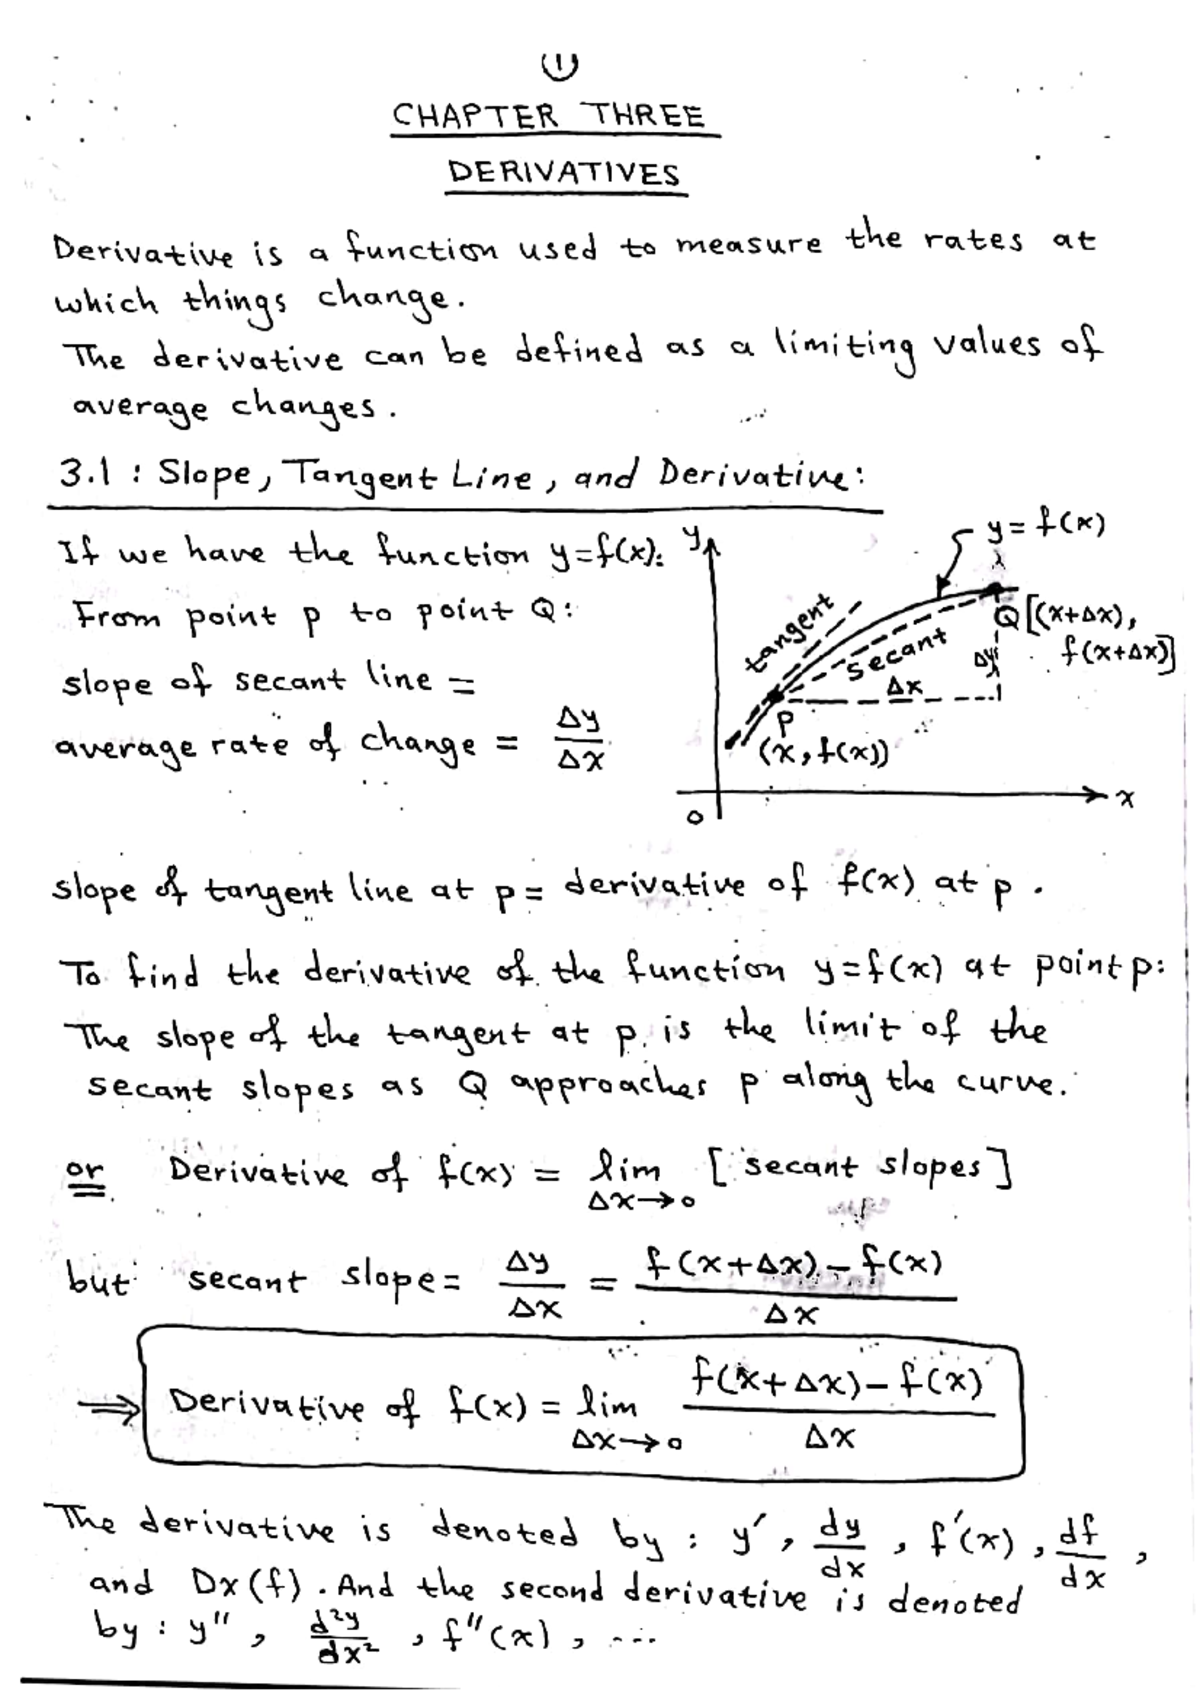 1
CHAPTER THREE
DERIVATIVES
Derivative is a function used to measure the rates at
which things change.
The derivative can be defined as a limiting values of
average changes.
3.1 : Slope, Tangent Line, and Derivative:
If we have the function y=f(x):
From point p to point Q:
slope of secant line =
average rate of change = Δy/Δx
y
y = f(x)
tangent
secant
Q[(x+Δx),
f(x+Δx)]
Δy
Δx
P
(x, f(x))
x
0
slope of tangent line at p = derivative of f(x) at p.
To find the derivative of the function y=f(x) at point p:
The slope of the tangent at p is the limit of the
secant slopes as Q approaches p along the curve.
or Derivative of f(x) = lim Δx→0 [secant slopes]
but secant slope = Δy/Δx = (f(x+Δx) - f(x))/Δx
⇒ Derivative of f(x) = lim Δx→0 (f(x+Δx) - f(x))/Δx
The derivative is denoted by : y′, dy/dx, f′(x), df/dx,
and Dx(f). And the second derivative is denoted
by : y″, d²y/dx², f″(x), ...